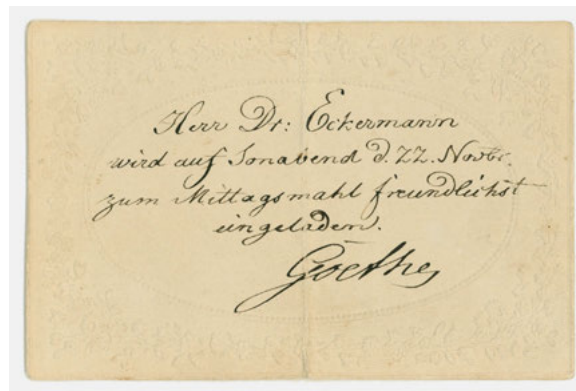 Herr Dr: Eckermann
wird auf Sonabend d. 22. Novbr.
zum Mittagsmahl freundlichst
eingeladen.
Goethe